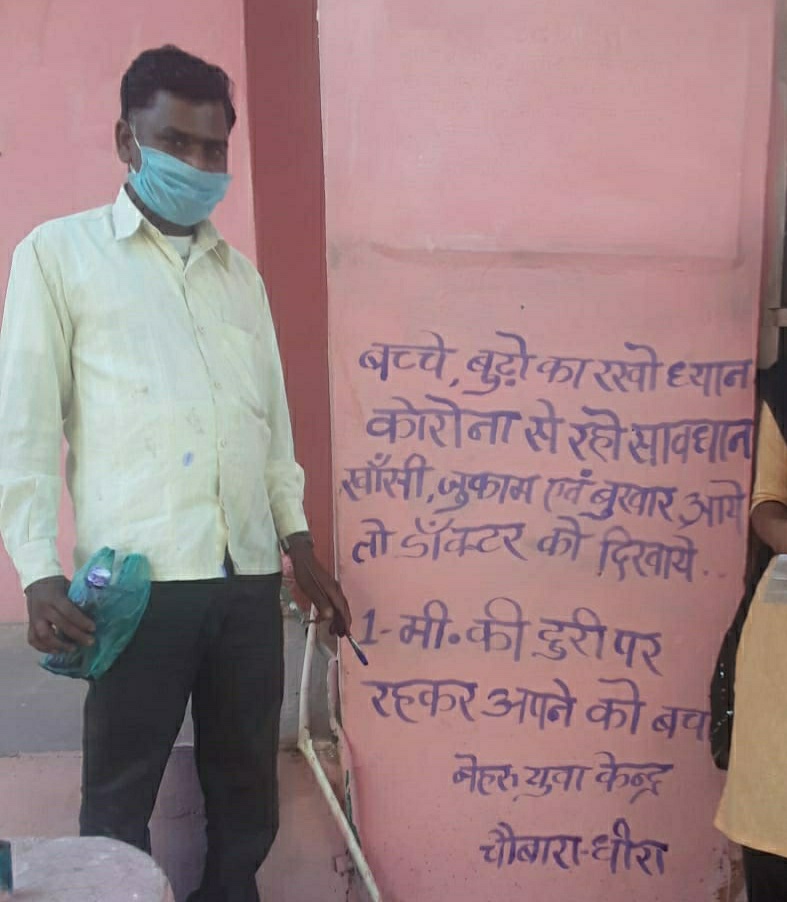 बच्चे, बुढ़ो का रखो ध्यान
कोरोना से रहो सावधान
खाँसी, जुकाम एवं बुखार आये
तो डॉक्टर को दिखाये..
1- मी. की दुरी पर
रहकर अपने को बचा
नेहरु युवा केन्द्र
चौबारा-धीरा